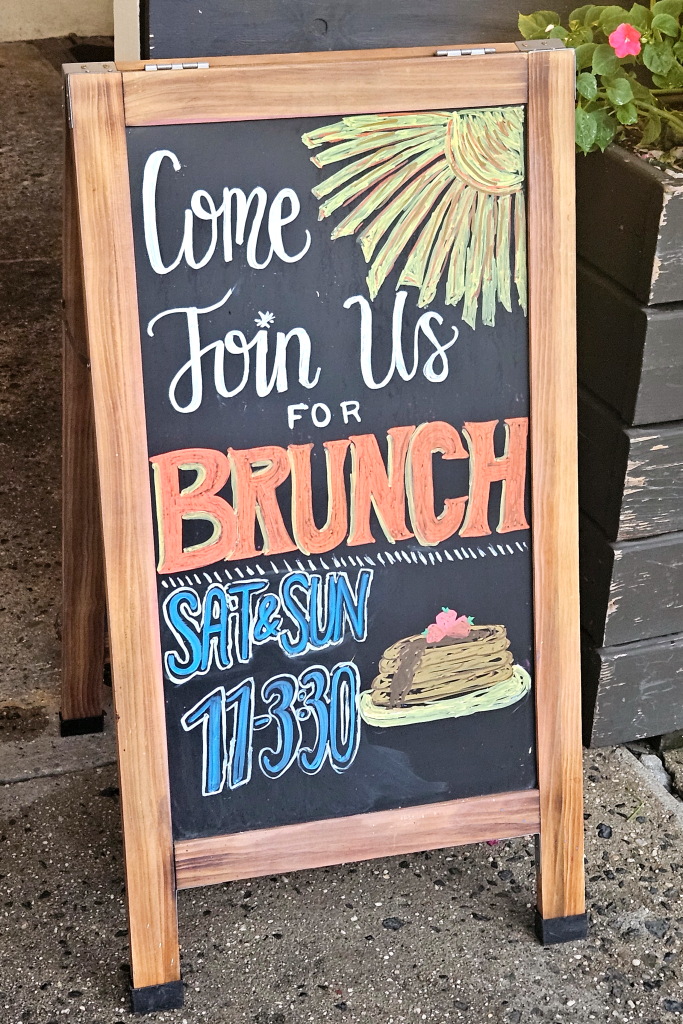 Come
Join Us
FOR
BRUNCH
SAT & SUN
11-3:30